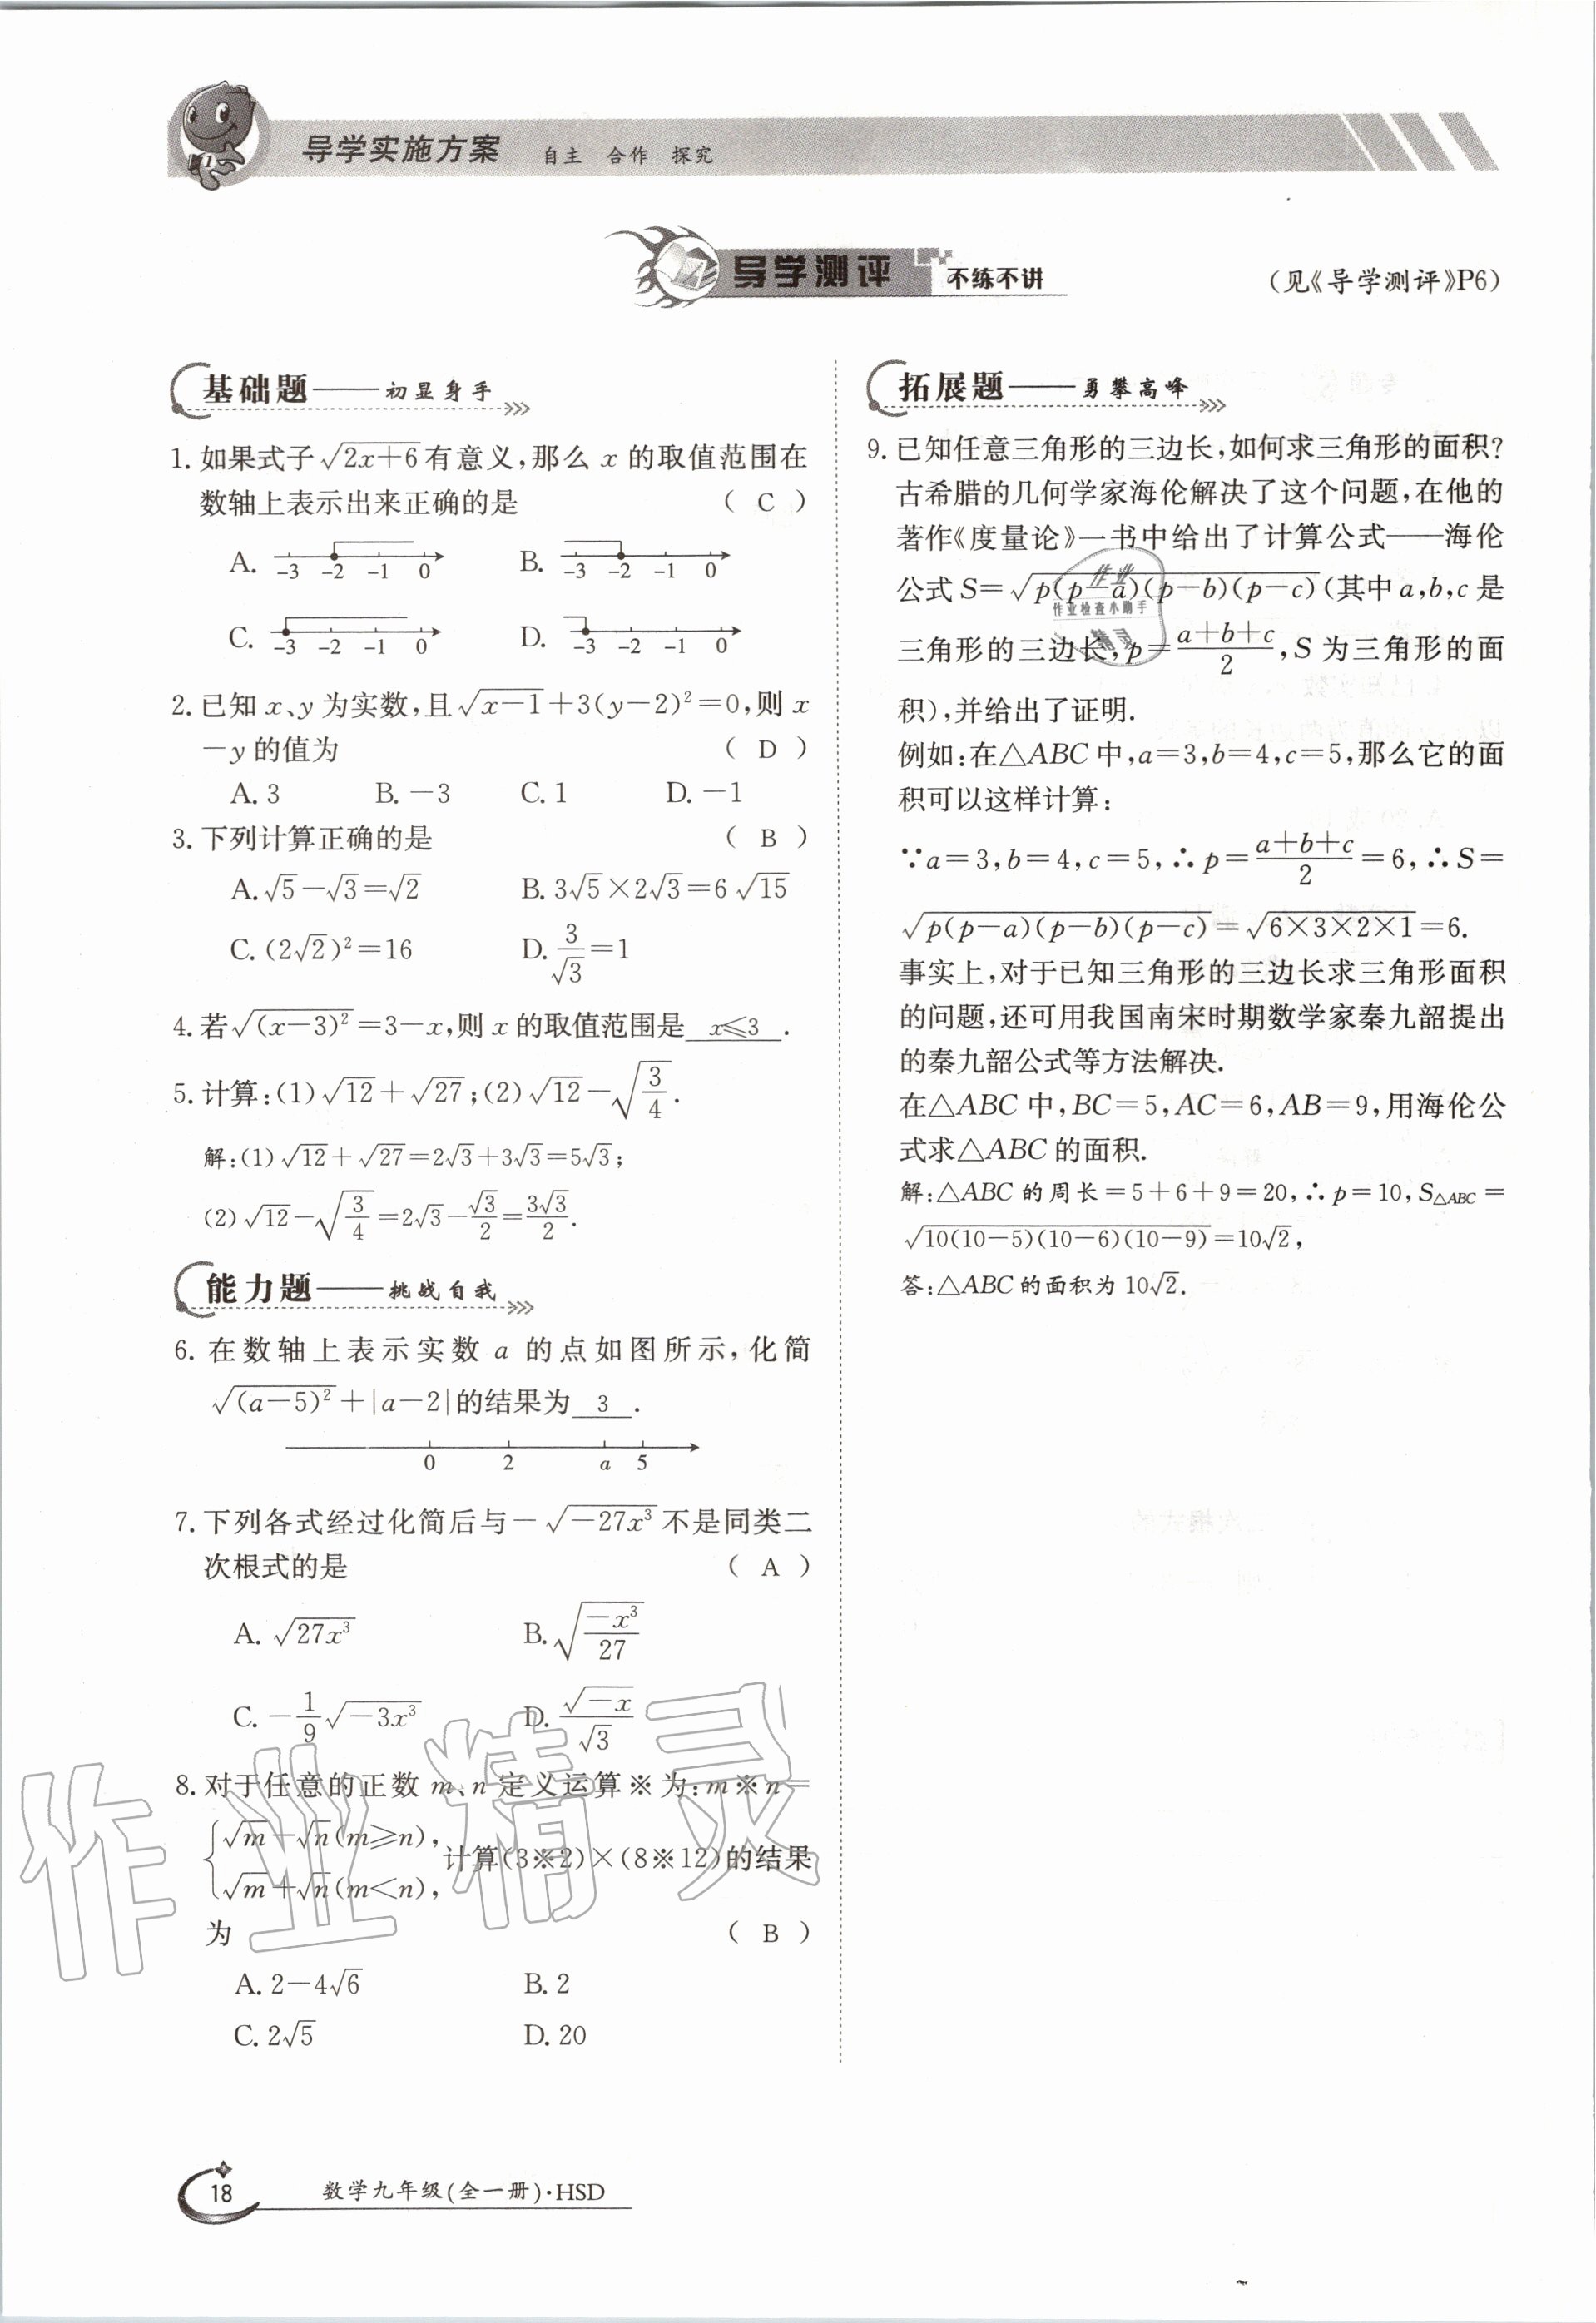 导学实施方案 自主 合作 探究
导学测评 不练不讲
(见《导学测评》P6)
基础题——初显身手
1. 如果式子√(2x+6)有意义,那么 x 的取值范围在
数轴上表示出来正确的是 ( C )
A. -3 -2 -1 0 B. -3 -2 -1 0
C. -3 -2 -1 0 D. -3 -2 -1 0
2. 已知 x、y 为实数,且√(x-1)+3(y-2)²=0,则 x
-y 的值为 ( D )
A. 3 B. -3 C. 1 D. -1
3. 下列计算正确的是 ( B )
A. √5-√3=√2 B. 3√5×2√3=6√15
C. (2√2)²=16 D. 3/√3=1
4. 若√((x-3)²)=3-x,则 x 的取值范围是 x≤3 .
5. 计算:(1)√12+√27;(2)√12-√(3/4).
解:(1)√12+√27=2√3+3√3=5√3;
(2)√12-√(3/4)=2√3-√3/2=3√3/2.
能力题——挑战自我
6. 在数轴上表示实数 a 的点如图所示,化简
√((a-5)²)+|a-2|的结果为 3 .
0 2 a 5
7. 下列各式经过化简后与-√(-27x³)不是同类二
次根式的是 ( A )
A. √(27x³) B. √(-x³/27)
C. -1/9√(-3x³) D. √(-x)/√3
8. 对于任意的正数 m、n 定义运算※为:m※n=
{√m-√n(m≥n),
√m+√n(m<n), 计算(3※2)×(8※12)的结果
为 ( B )
A. 2-4√6 B. 2
C. 2√5 D. 20
拓展题——勇攀高峰
9. 已知任意三角形的三边长,如何求三角形的面积?
古希腊的几何学家海伦解决了这个问题,在他的
著作《度量论》一书中给出了计算公式——海伦
公式 S=√(p(p-a)(p-b)(p-c))(其中 a,b,c 是
三角形的三边长,p=(a+b+c)/2,S 为三角形的面
积),并给出了证明.
例如:在△ABC 中,a=3,b=4,c=5,那么它的面
积可以这样计算:
∵a=3,b=4,c=5,∴p=(a+b+c)/2=6,∴S=
√(p(p-a)(p-b)(p-c))=√(6×3×2×1)=6.
事实上,对于已知三角形的三边长求三角形面积
的问题,还可用我国南宋时期数学家秦九韶提出
的秦九韶公式等方法解决.
在△ABC 中,BC=5,AC=6,AB=9,用海伦公
式求△ABC 的面积.
解:△ABC 的周长=5+6+9=20,∴p=10,S△ABC=
√(10(10-5)(10-6)(10-9))=10√2,
答:△ABC 的面积为 10√2.
作业
作业检查小助手
精灵
作业精灵
18 数学九年级(全一册)·HSD